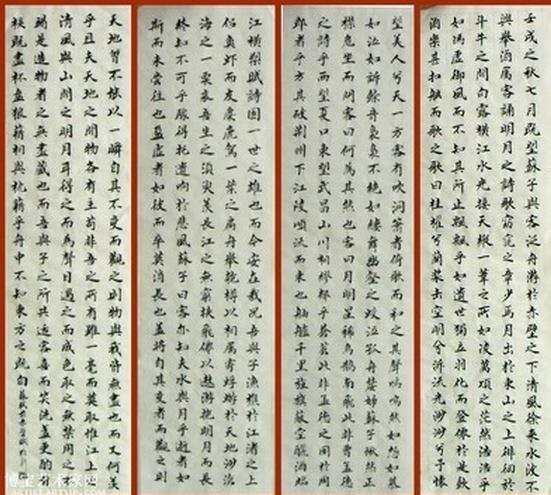 壬戌之秋七月既望蘇子與客泛舟游於赤壁之下清風徐來水波不
興舉酒屬客誦明月之詩歌窈窕之章少焉月出於東山之上徘徊於
斗牛之間白露橫江水光接天縱一葦之所如凌萬頃之茫然浩浩乎
如馮虛御風而不知其所止飄飄乎如遺世獨立羽化而登僊於是飲
酒樂甚扣舷而歌之歌曰桂棹兮蘭槳擊空明兮泝流光渺渺兮予懷
望美人兮天一方客有吹洞簫者倚歌而和之其聲嗚嗚然如怨如慕
如泣如訴餘音裊裊不絕如縷舞幽壑之潛蛟泣孤舟嫠婦蘇子愀然正
襟危坐而問客曰何為其然也客曰月明星稀烏鵲南飛此非曹孟德
之詩乎西望夏口東望武昌山川相繆鬱乎蒼蒼此非孟德之困於周
郎者乎方其破荊州下江陵順流而東也舳艫千里旌旗蔽空釃酒臨
江橫槊賦詩固一世之雄也而今安在哉況吾與子漁樵於江渚之上
侶魚蝦而友麋鹿駕一葉之扁舟舉匏樽以相屬寄蜉蝣於天地渺滄
海之一粟哀吾生之須臾羨長江之無窮挾飛僊以遨游抱明月而長
終知不可乎驟得托遺響於悲風蘇子曰客亦知夫水與月乎逝者如
斯而未嘗往也盈虛者如彼而卒莫消長也蓋將自其變者而觀之則
天地曾不能以一瞬自其不變而觀之則物與我皆無盡也而又何羨
乎且夫天地之間物各有主苟非吾之所有雖一毫而莫取惟江上之
清風與山間之明月耳得之而為聲目遇之而成色取之無禁用之不
竭是造物者之無盡藏也而吾與子之所共適客喜而笑洗盞更酌
肴核既盡杯盤狼籍相與枕藉乎舟中不知東方之既白
博宝艺术家网